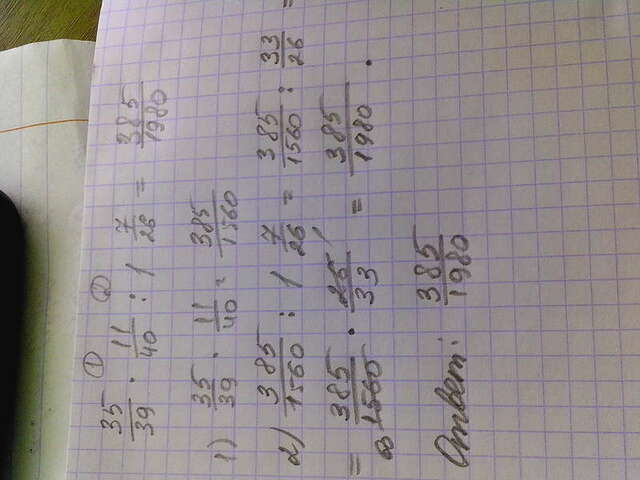 ① ②
35/39 · 11/40 : 1 7/26 = 385/1980
1) 35/39 · 11/40 = 385/1560
2) 385/1560 : 1 7/26 = 385/1560 : 33/26 =
= 385/1560 · 26/33 = 385/1980 .
Ответ: 385/1980